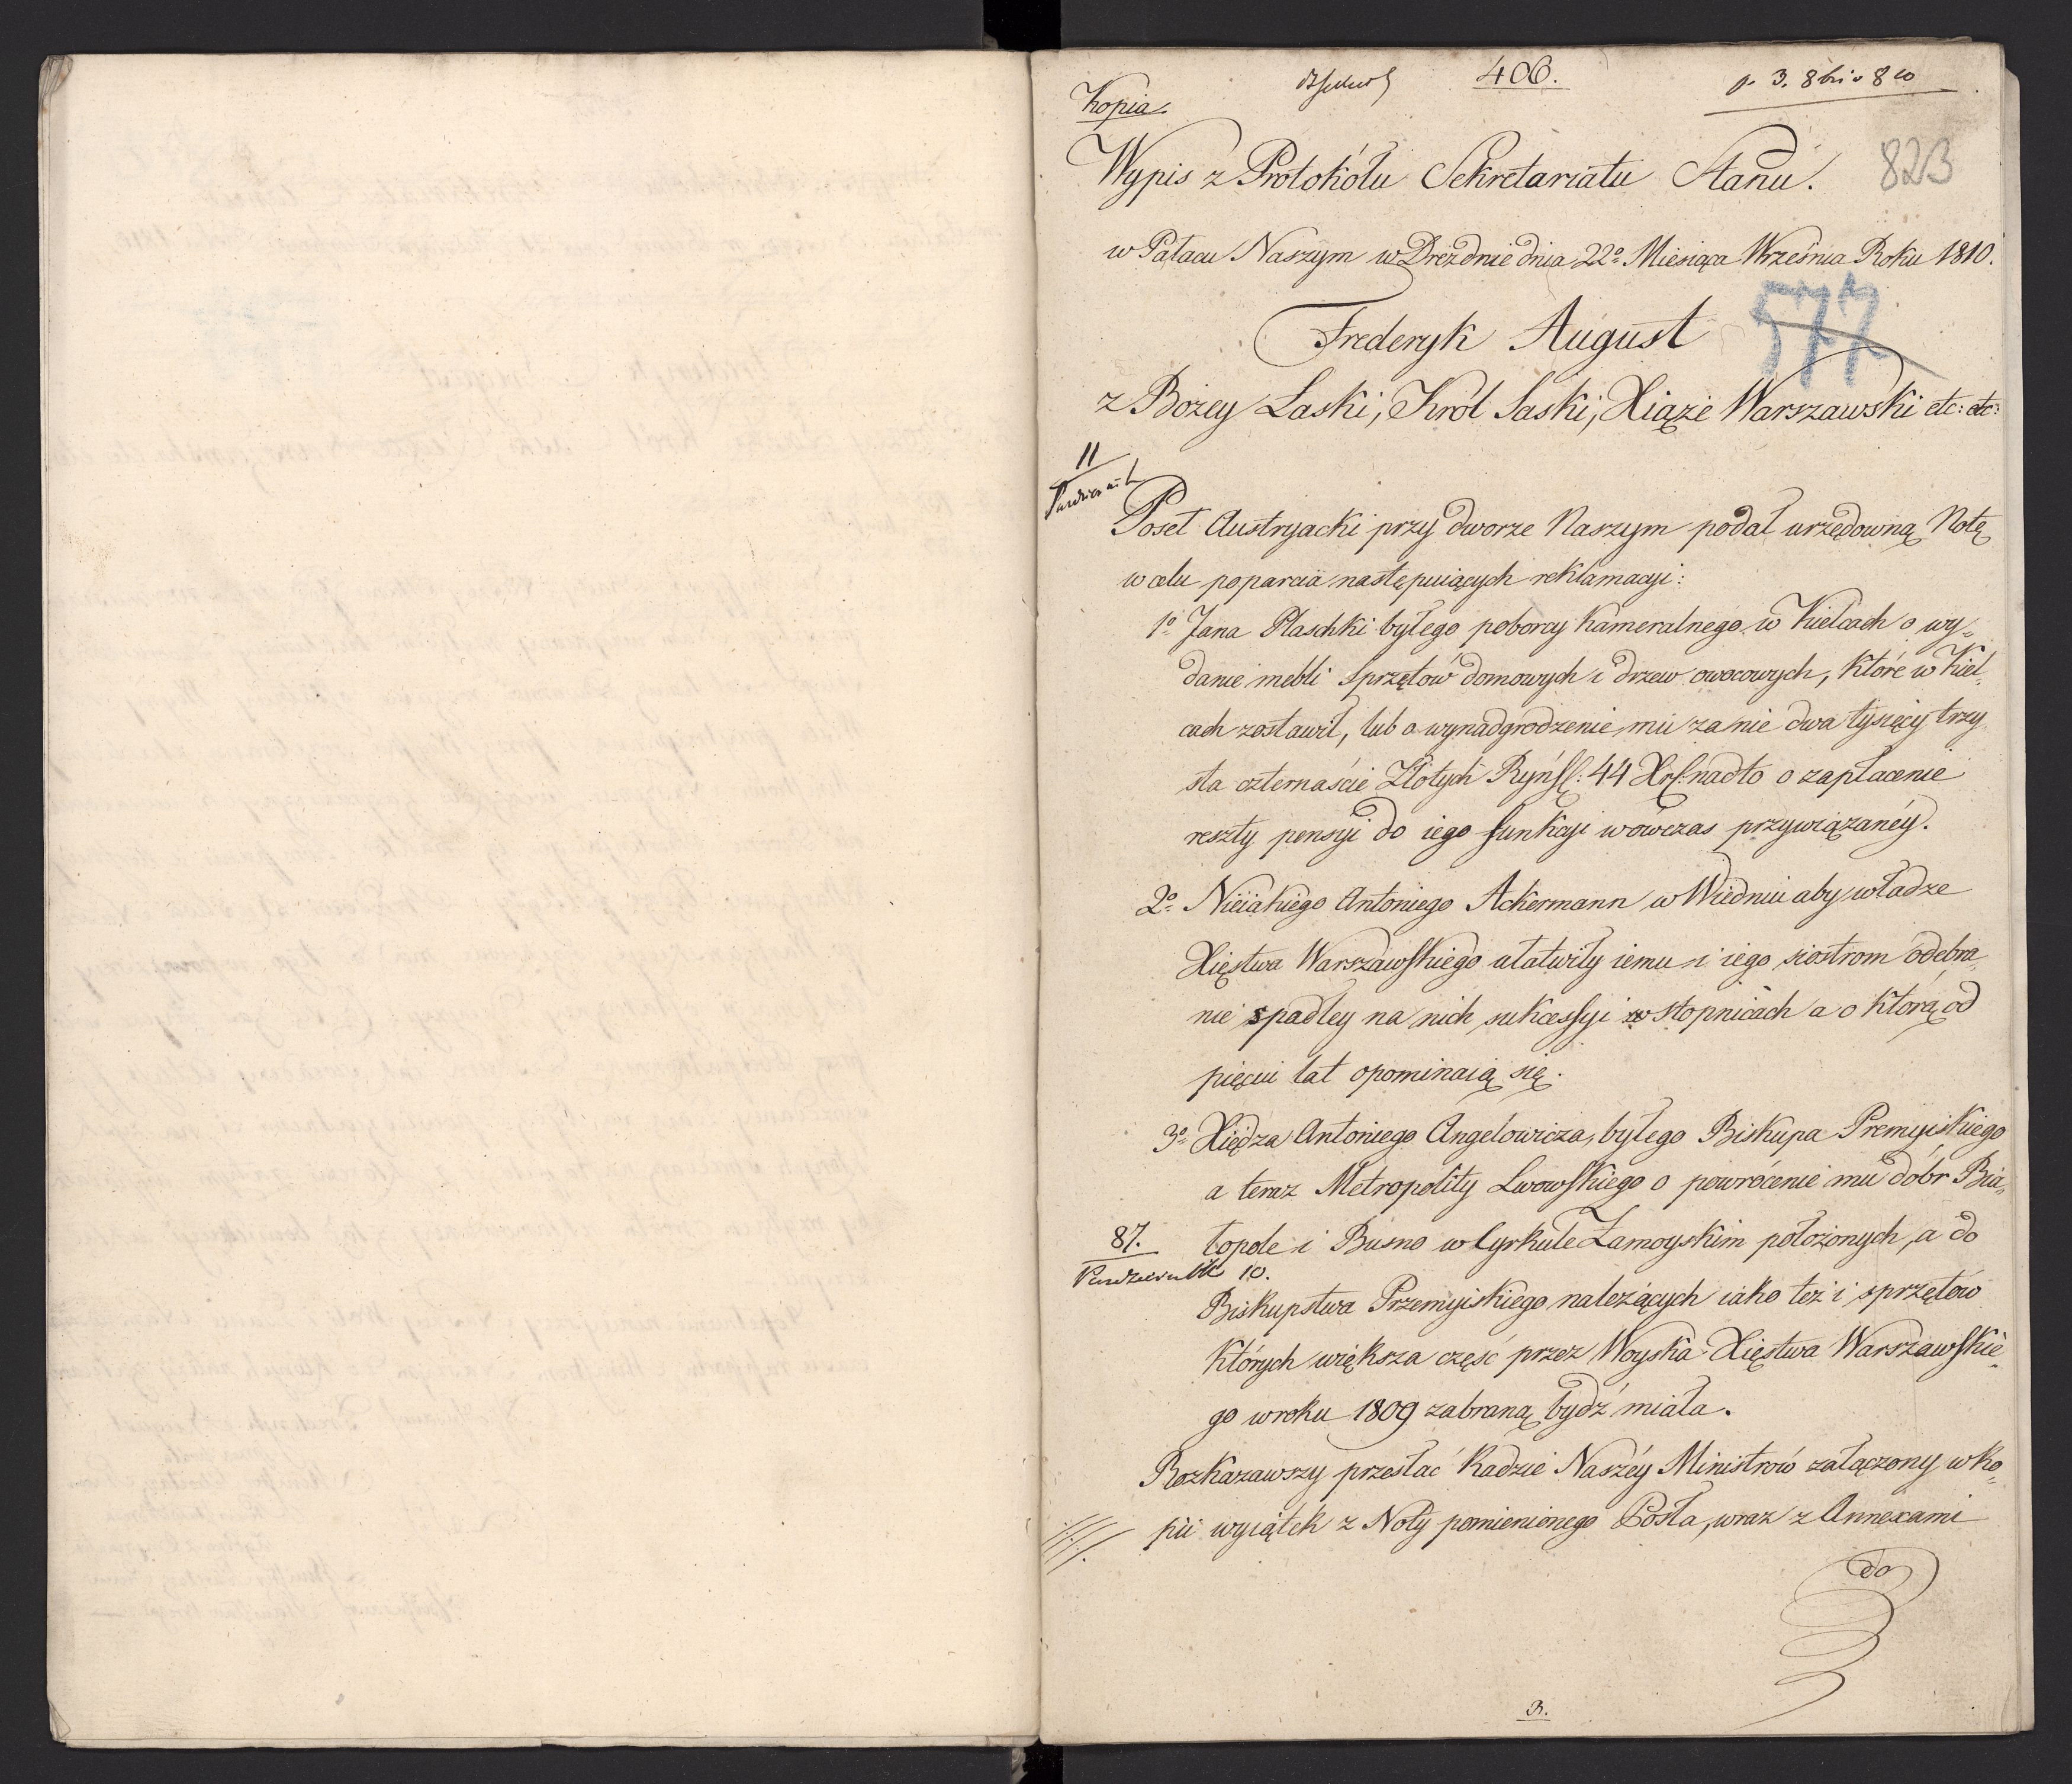 406.
Kopia
823
Wypis z Protokółu Sekretariatu Stanu.
w Pałacu Naszym w Dreźdnie dnia 22º Miesiąca Września Roku 1810.
577
Frederyk August
z Bożey Łaski, Król Saski, Xiąże Warszawski etc: etc:
11
Poseł Austryacki przy dworze Naszym podał urzędowną Notę
w celu poparcia następuiących reklamacyi:
1º Jana Plaschki byłego poborcy kameralnego w Kielcach o wy„
danie mebli sprzętów domowych i drzew owocowych, które w Kiel„
cach zostawił, lub o wynadgrodzenie mu za nie dwa tysięcy trzy
sta czternaście Złotych Ryńs: 44 Xr: nadto o zapłacenie
reszty pensyi do iego funkcyi wówczas przywiązanéy.
2º Nieiakiego Antoniego Ackermann w Wiedniu aby władze
Xięstwa Warszawskiego ułatwiły iemu i iego siostrom odebra„
nie spadłey na nich sukcessyi w Stopnicach a o którą od
pięciu lat opominaią się.
3º Xiędza Antoniego Angelowicza, byłego Biskupa Premyiskiego
a teraz Metropolity Lwowskiego o powrócenie mu dóbr Bia„
87.
łopole i Busno w Cyrkule Zamoyskim położonych, a do
10.
Biskupstwa Przemyiskiego należących iako też i sprzętów
których większa część przez Woyska Xięstwa Warszawskie„
go w roku 1809 zabraną bydź miała.
Rozkazawszy przesłać Radzie Naszéy Ministrów załączony w ko„
pii wyiątek z Noty pomienionego Posła, wraz z Annexami
do
3.